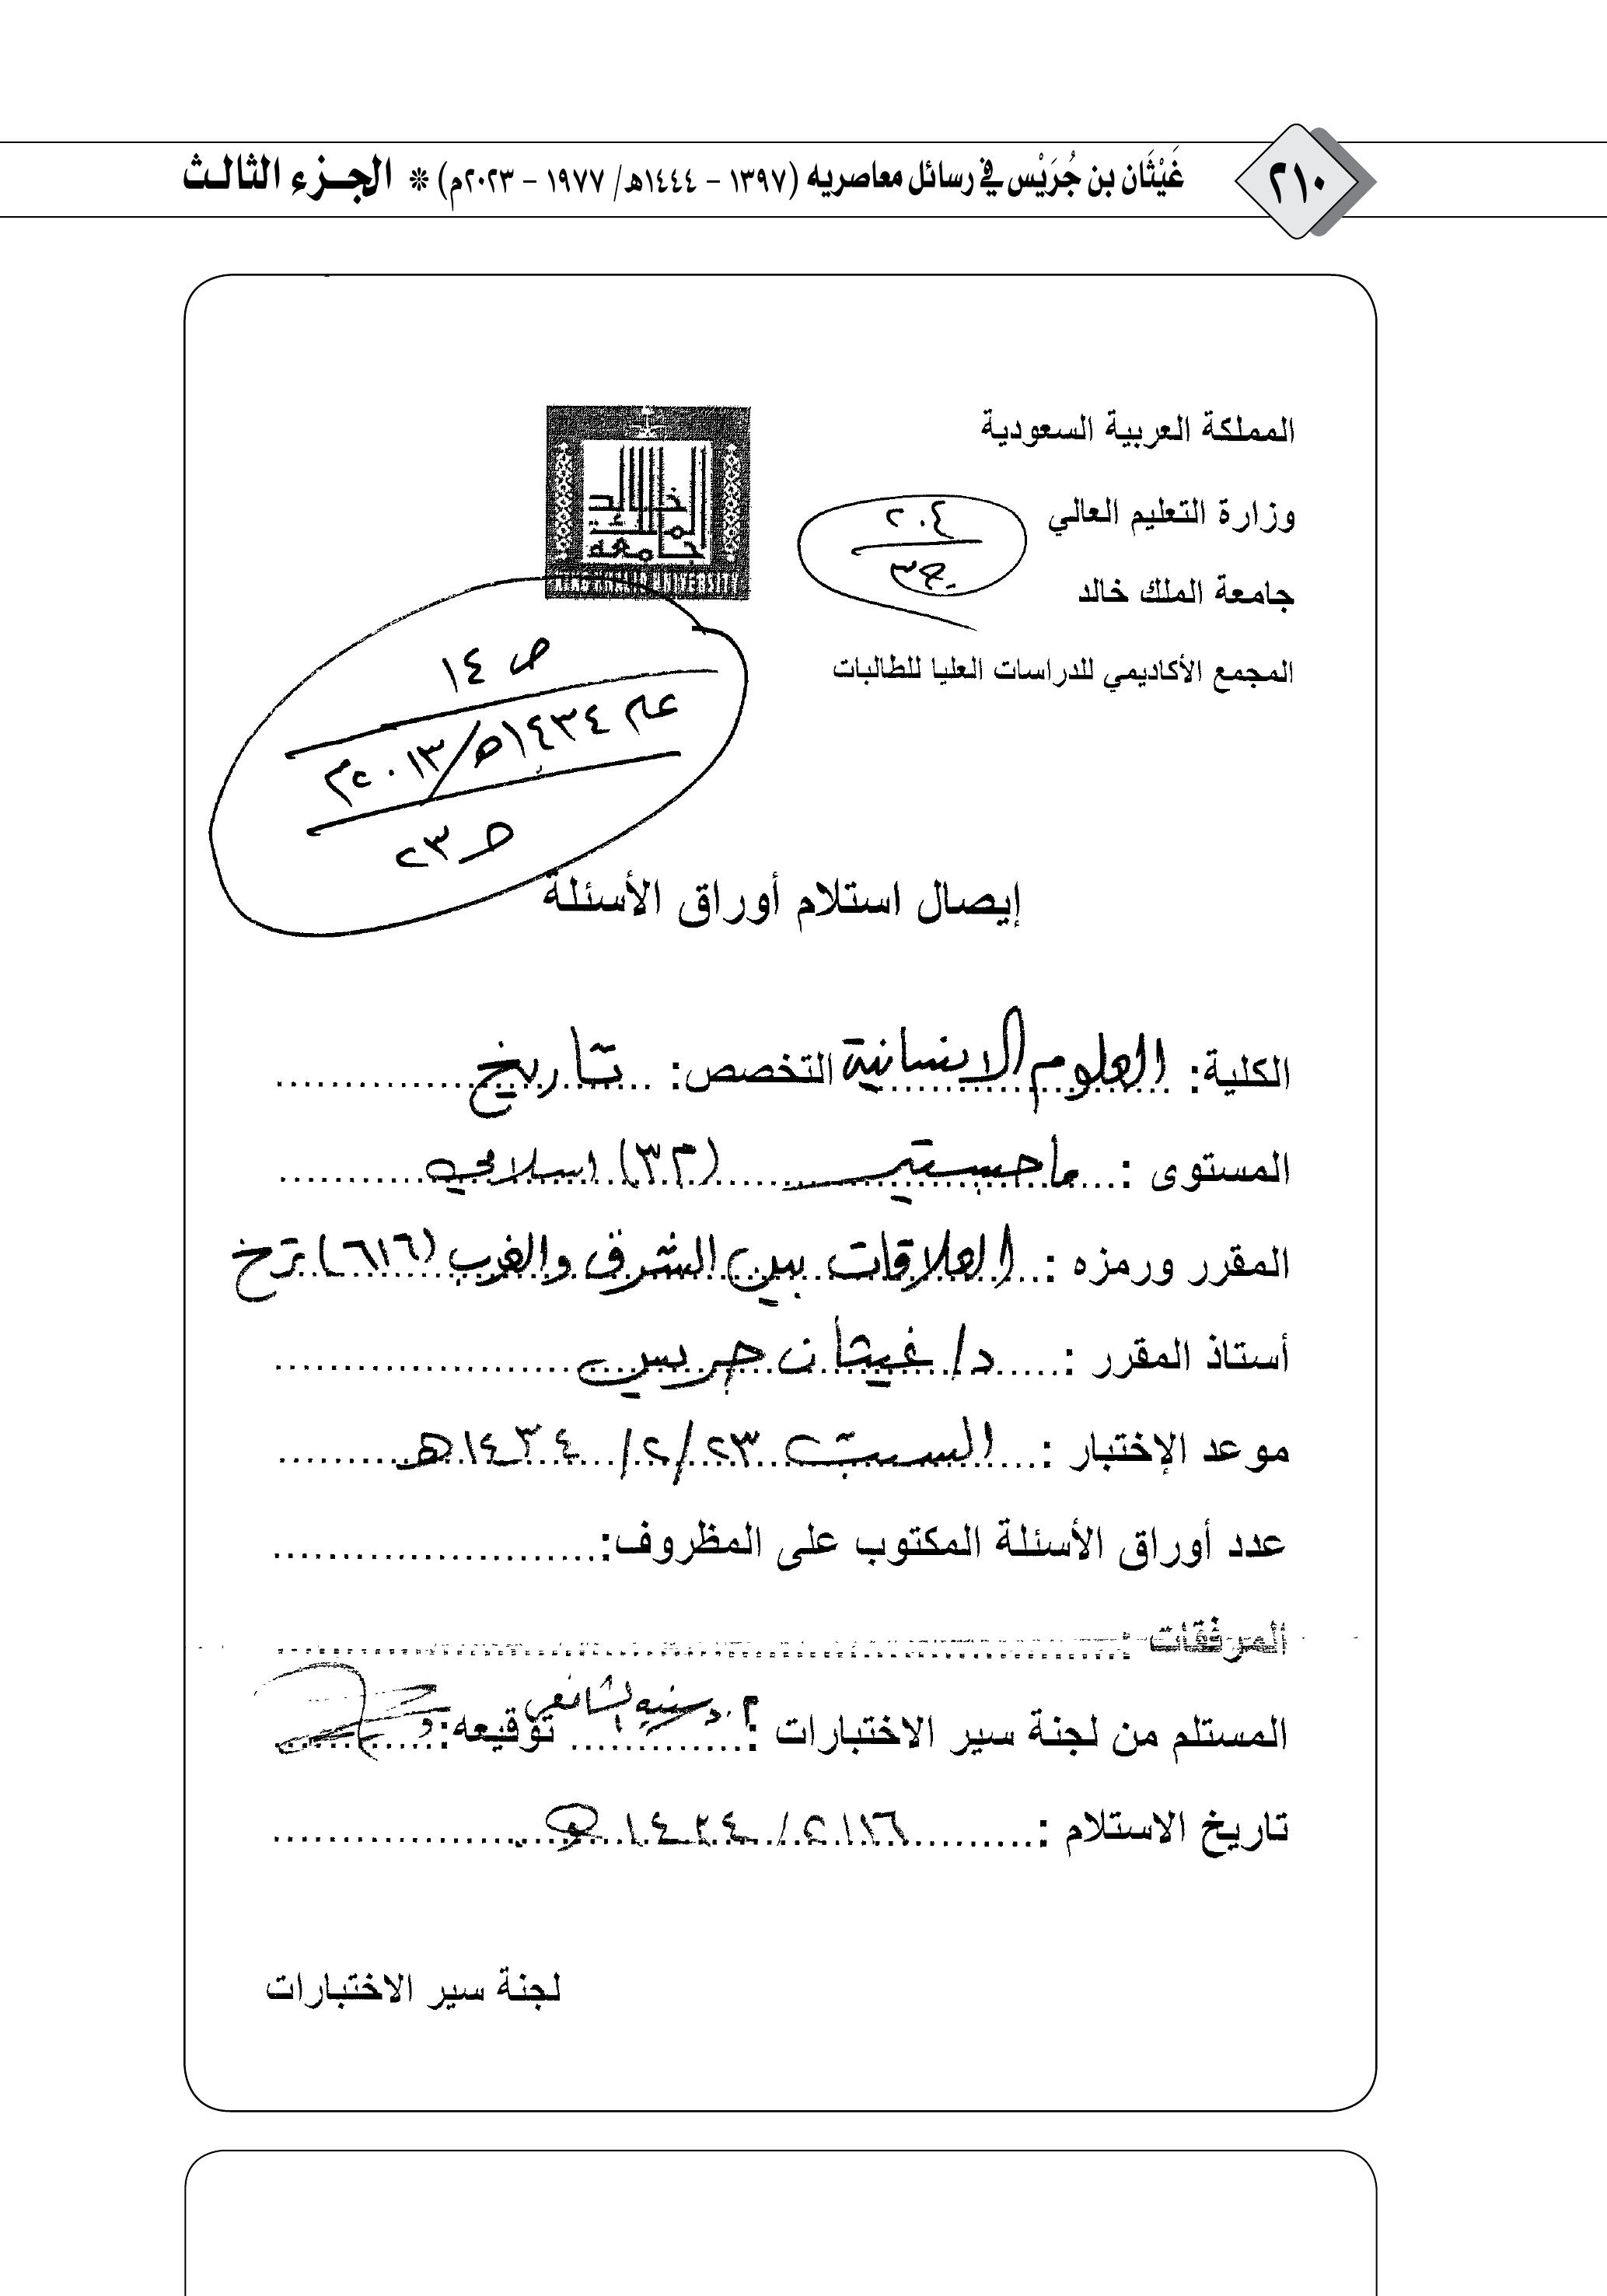 ٢١٠ غَيْثَان بن جُرَيْس في رسائل معاصريه (١٣٩٧ - ١٤٤٤هـ/ ١٩٧٧ - ٢٠٢٣م) * الجـزء الثالـث
المملكة العربية السعودية
وزارة التعليم العالي
٢٠٤
ج٣
جامعة الملك خالد
المجمع الأكاديمي للدراسات العليا للطالبات
خالد
جامعة
KING KHALID UNIVERSITY
ص ١٤
عام ١٤٣٤هـ/٢٠١٣م
حـ ٢٣
إيصال استلام أوراق الأسئلة
الكلية: العلوم الانسانية التخصص: تاريخ
المستوى : ماجستير (م٣) اسلامي
المقرر ورمزه : العلاقات بين الشرق والغرب (٦١٦) ترخ
أستاذ المقرر : د/ غيثان جريس
موعد الإختبار : السبت ٢٣/٢/ ١٤٣٤هـ
عدد أوراق الأسئلة المكتوب على المظروف:
المرفقات :
المستلم من لجنة سير الاختبارات : توقيعه:
تاريخ الاستلام : ١٦/٢/ ١٤٣٤هـ
لجنة سير الاختبارات